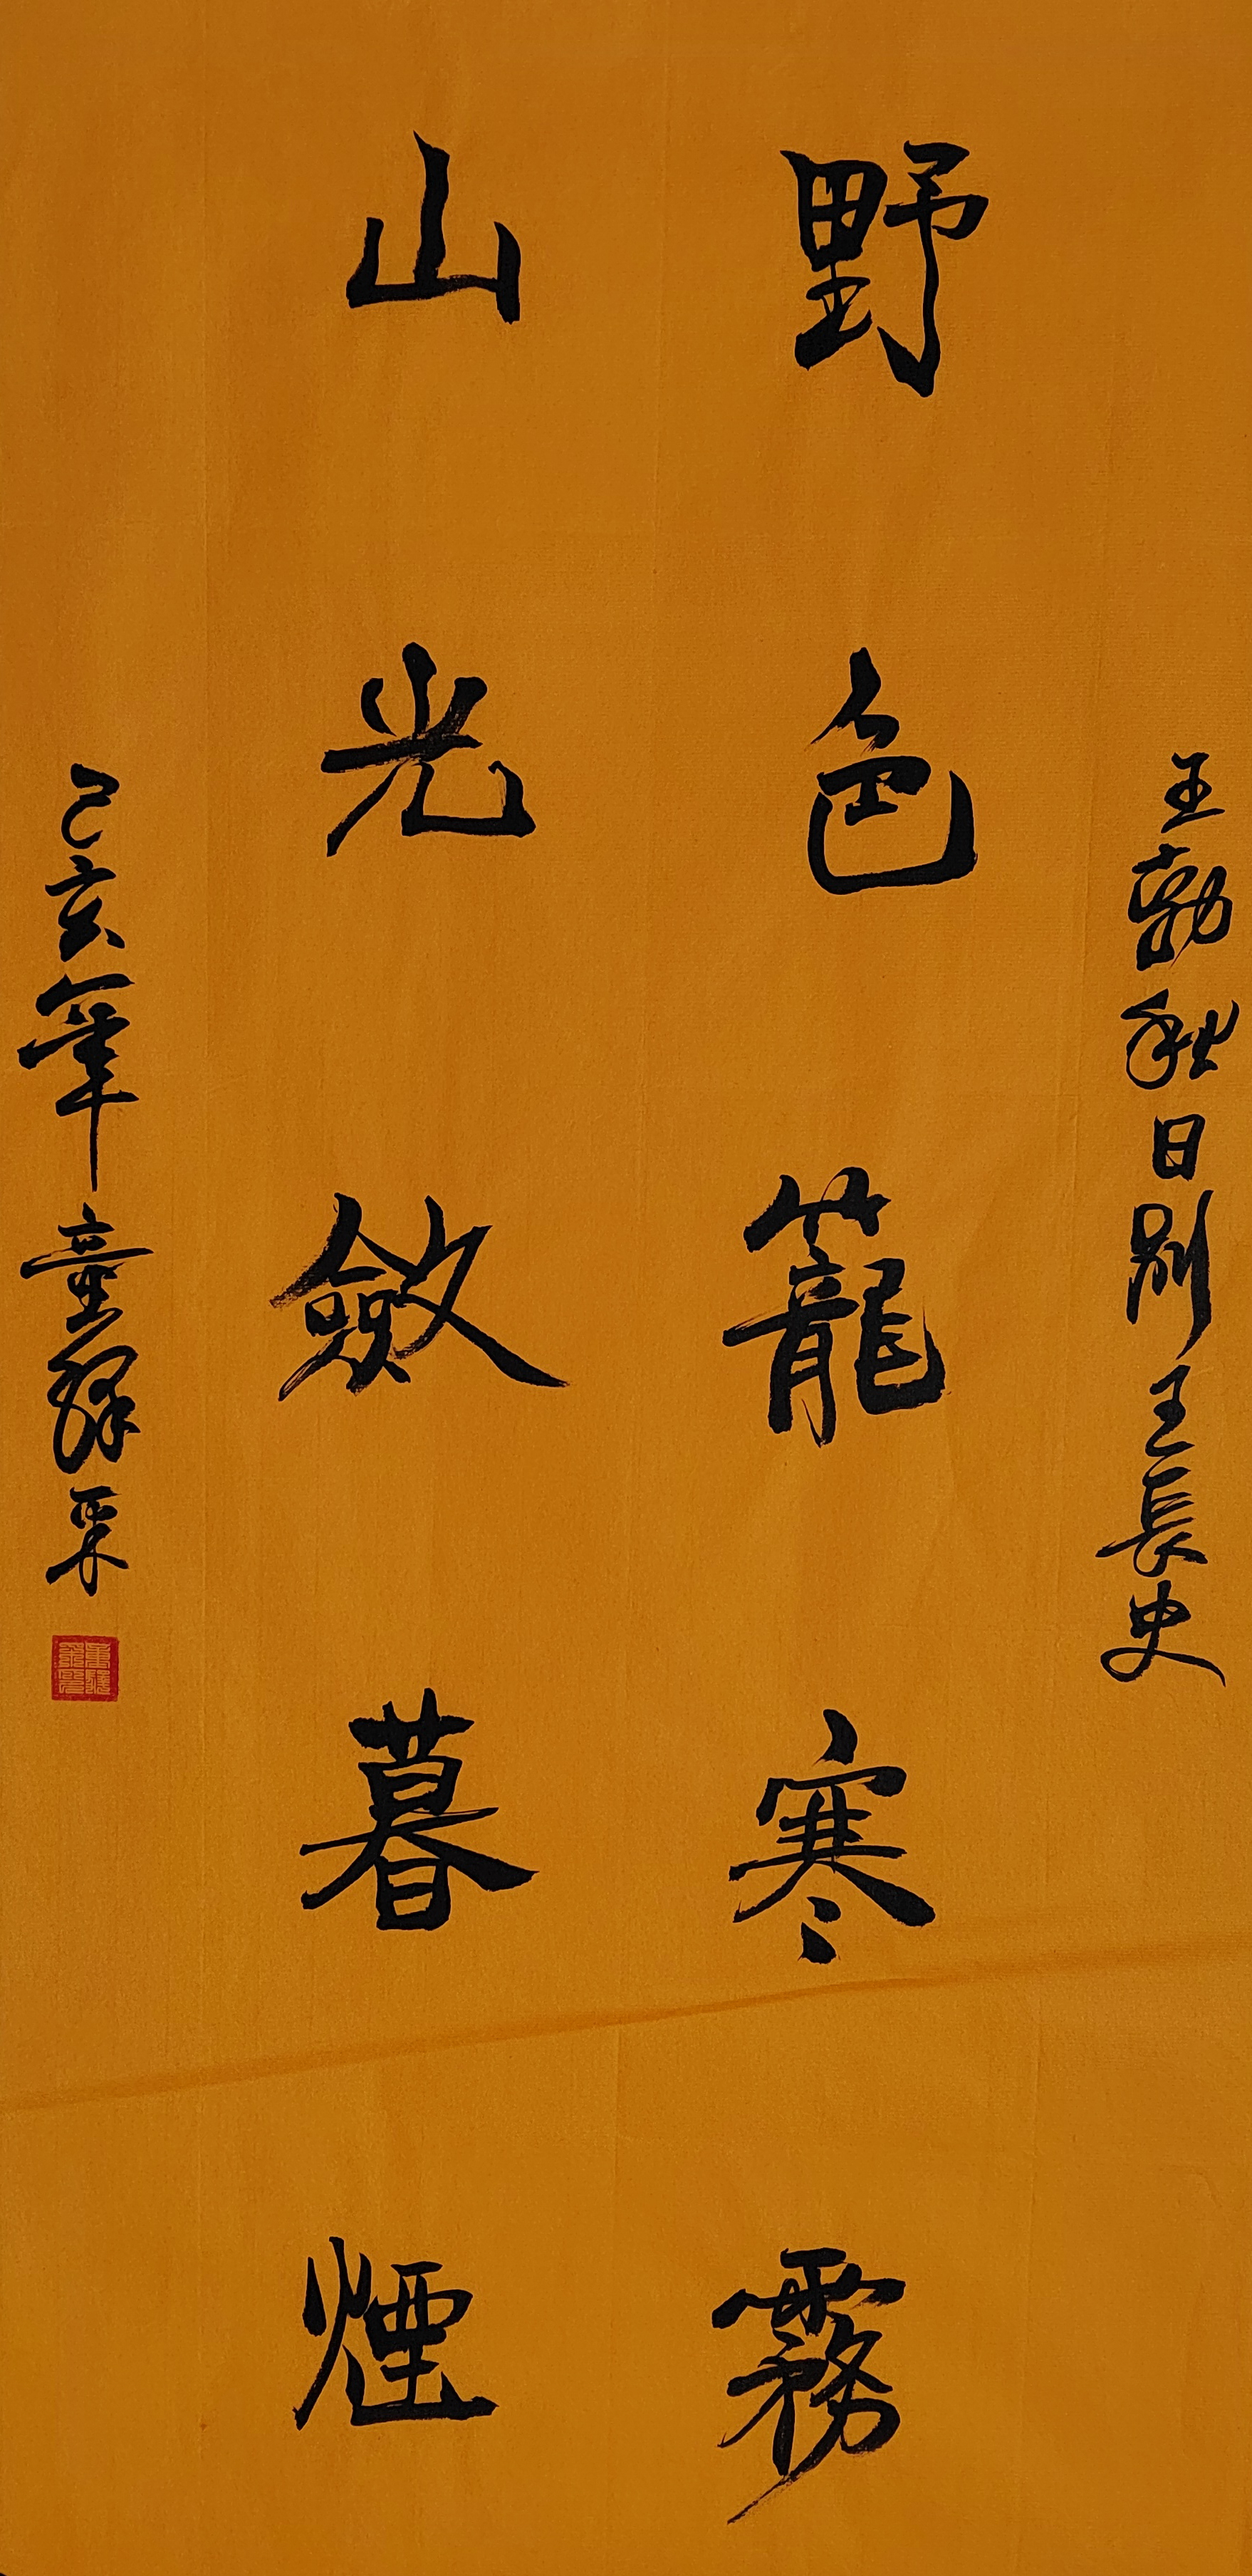 王勃秋日別王長史
野色籠寒霧
山光斂暮煙
己亥年童釋采